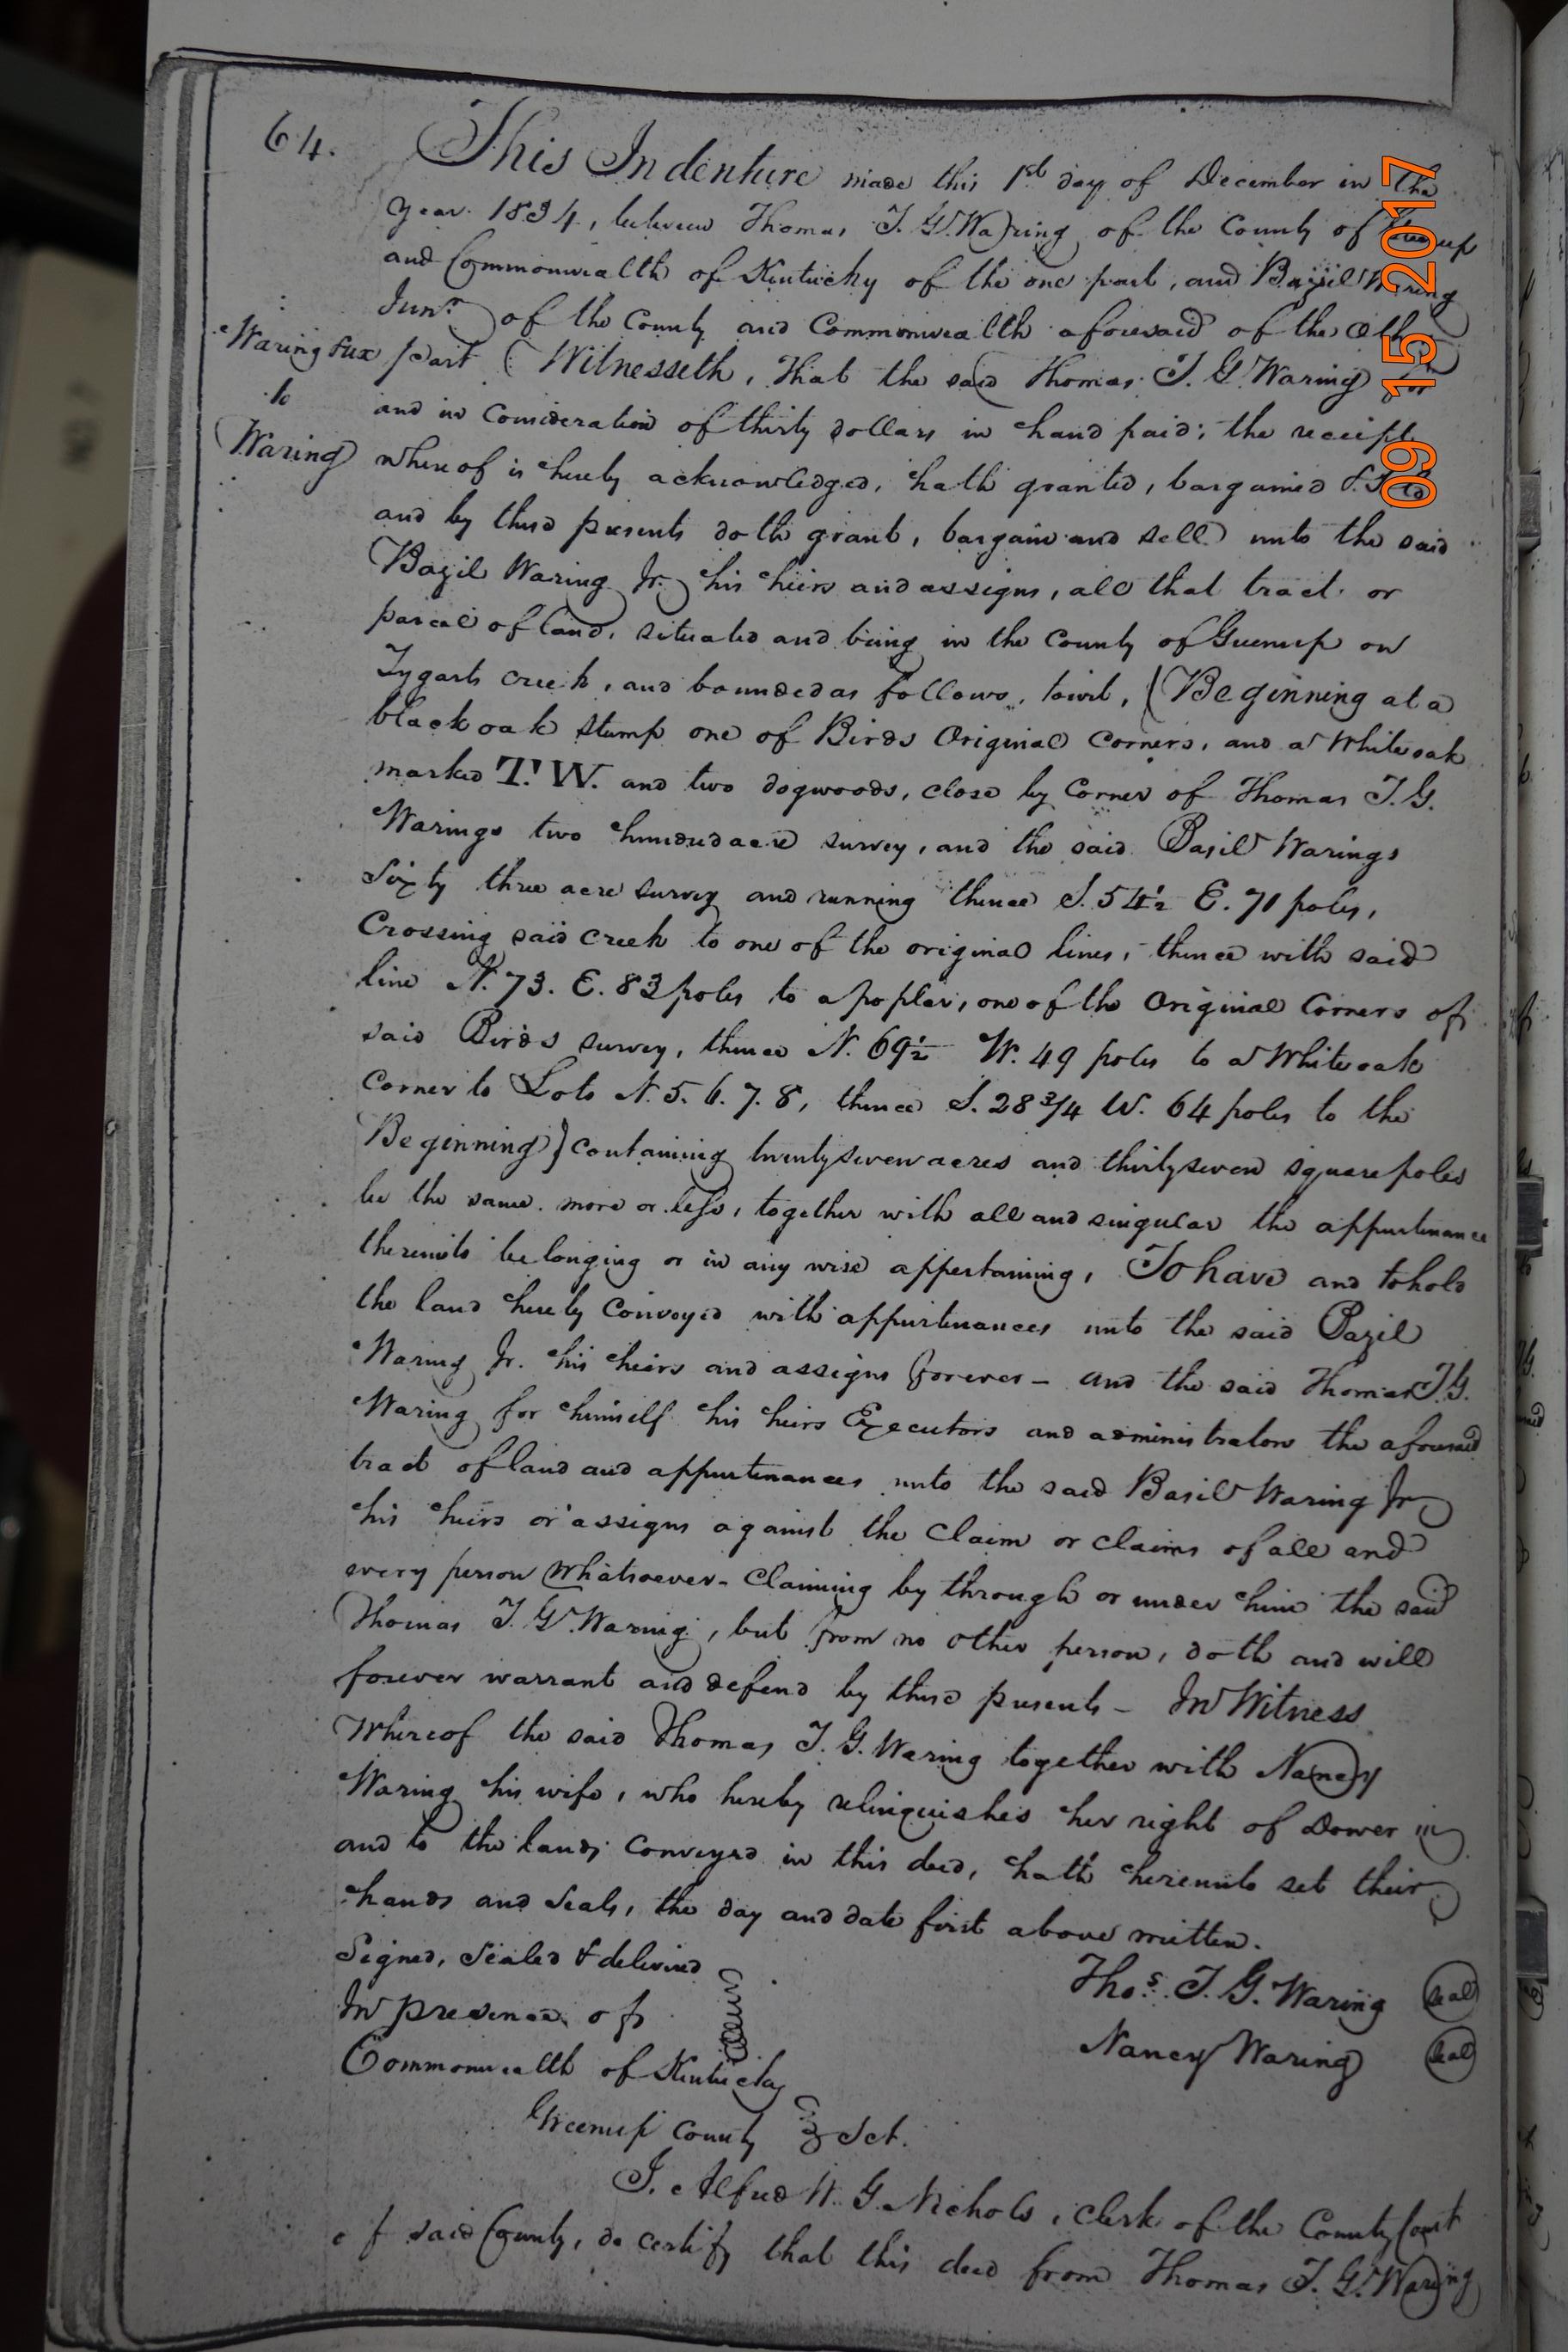 64.
This Indenture made this 1st day of December in the
year 1834, between Thomas T. G. Waring of the County of Greenup
and Commonwealth of Kentucky of the one part, and Bazil Waring
Junr. of the County and Commonwealth aforesaid of the Oth
Waring & ux
to
Waring
part (Witnesseth, That the said Thomas T. G. Waring for
and in Consideration of thirty dollars in hand paid; the receipt
whereof is hereby acknowledged, hath granted, bargained & Sold
and by these presents doth grant, bargain and sell unto the said
Bazil Waring Jr. his heirs and assigns, all that tract or
parcel of land, situated and being in the County of Greenup on
Tygarts creek, and bounded as follows, towit, (Beginning at a
black oak stump one of Birds Original Corners, and a White oak
marked T. W. and two dogwoods, close by Corner of Thomas T. G.
Warings two hundred acre survey, and the said Basil Warings
Sixty three acre survey and running thence S. 54½ E. 71 poles,
Crossing said creek to one of the original lines, thence with said
line N. 73. E. 83 poles to a poplar, one of the Original Corners of
said Birds survey, thence N. 69½ W. 49 poles to a White oak
Corner to Lots N. 5. 6. 7. 8, thence S. 28 3/4 W. 64 poles to the
Beginning) containing twenty seven acres and thirty seven square poles
be the same more or less, together with all and singular the appurtenance
thereunto belonging or in any wise appertaining, To have and to hold
the land hereby Conveyed with appurtenances unto the said Bazil
Waring Jr. his heirs and assigns forever - and the said Thomas T. G.
Waring for himself his heirs Executors and administrators the aforesaid
tract of land and appurtenances unto the said Basil Waring Jr
his heirs or assigns against the Claim or claims of all and
every person Whatsoever - Claiming by through or under him the said
Thomas T. G. Waring, but from no other person, doth and will
forever warrant and defend by these presents - In Witness
Whereof the said Thomas T. G. Waring together with Nancy
Waring his wife, who hereby relinquishes her right of Dower in
and to the lands Conveyed in this deed, hath hereunto set their
hands and Seals, the day and date first above written.
Signed, Sealed & delivered
In presence of
Thos. T. G. Waring (seal)
Nancy Waring (seal)
Commonwealth of Kentucky
Greenup County } Sct.
I. Alfred W. G. Nichols, Clerk of the County Court
of said County, do certify that this deed from Thomas T. G. Waring
09 15 2017